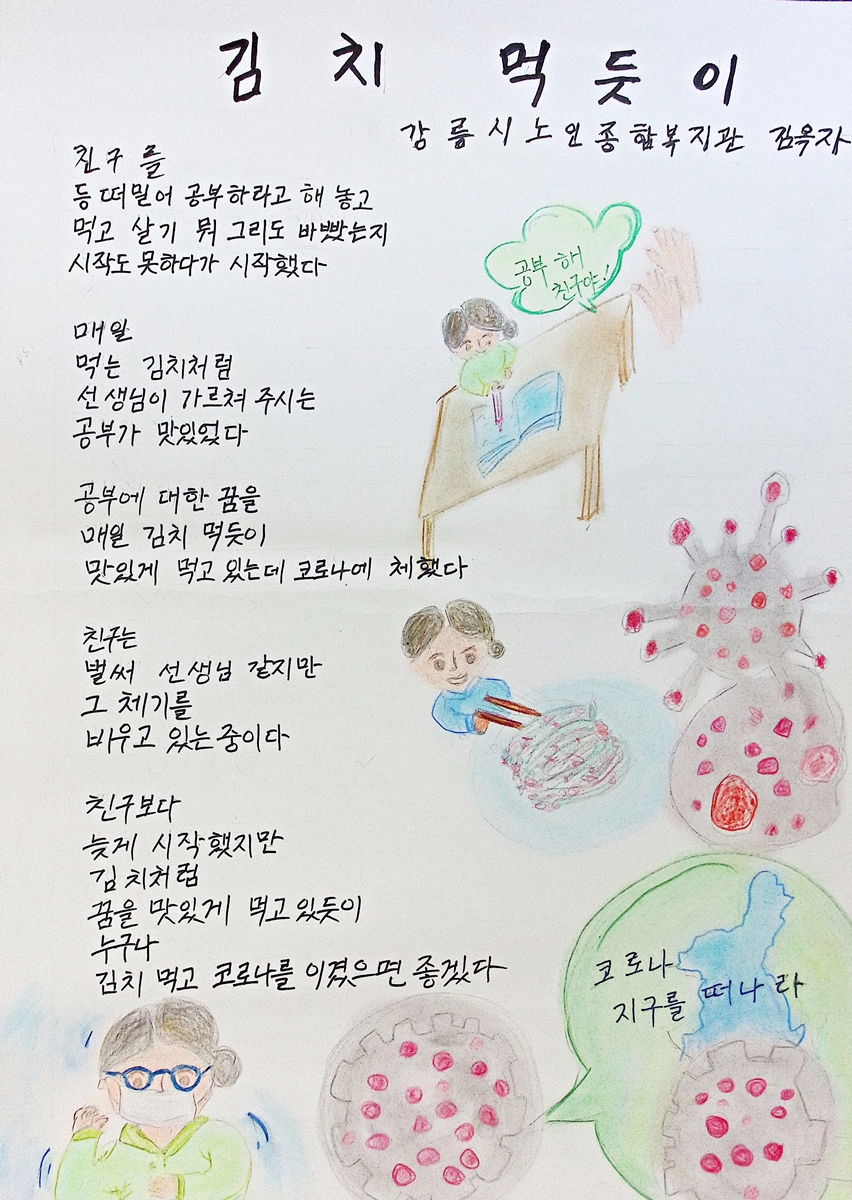 김치 먹듯이
강릉시노인종합복지관 김옥자
친구를
등 떠밀어 공부하라고 해 놓고
먹고 살기 뭐 그리도 바빴는지
시작도 못하다가 시작했다
매일
먹는 김치처럼
선생님이 가르쳐 주시는
공부가 맛있었다
공부에 대한 꿈을
매일 김치 먹듯이
맛있게 먹고 있는데 코로나에 체했다
친구는
벌써 선생님 같지만
그 체기를
바우고 있는 중이다
친구보다
늦게 시작했지만
김치처럼
꿈을 맛있게 먹고 있듯이
누구나
김치 먹고 코로나를 이겼으면 좋겠다
공부 해
친구야!
코로나
지구를 떠나라